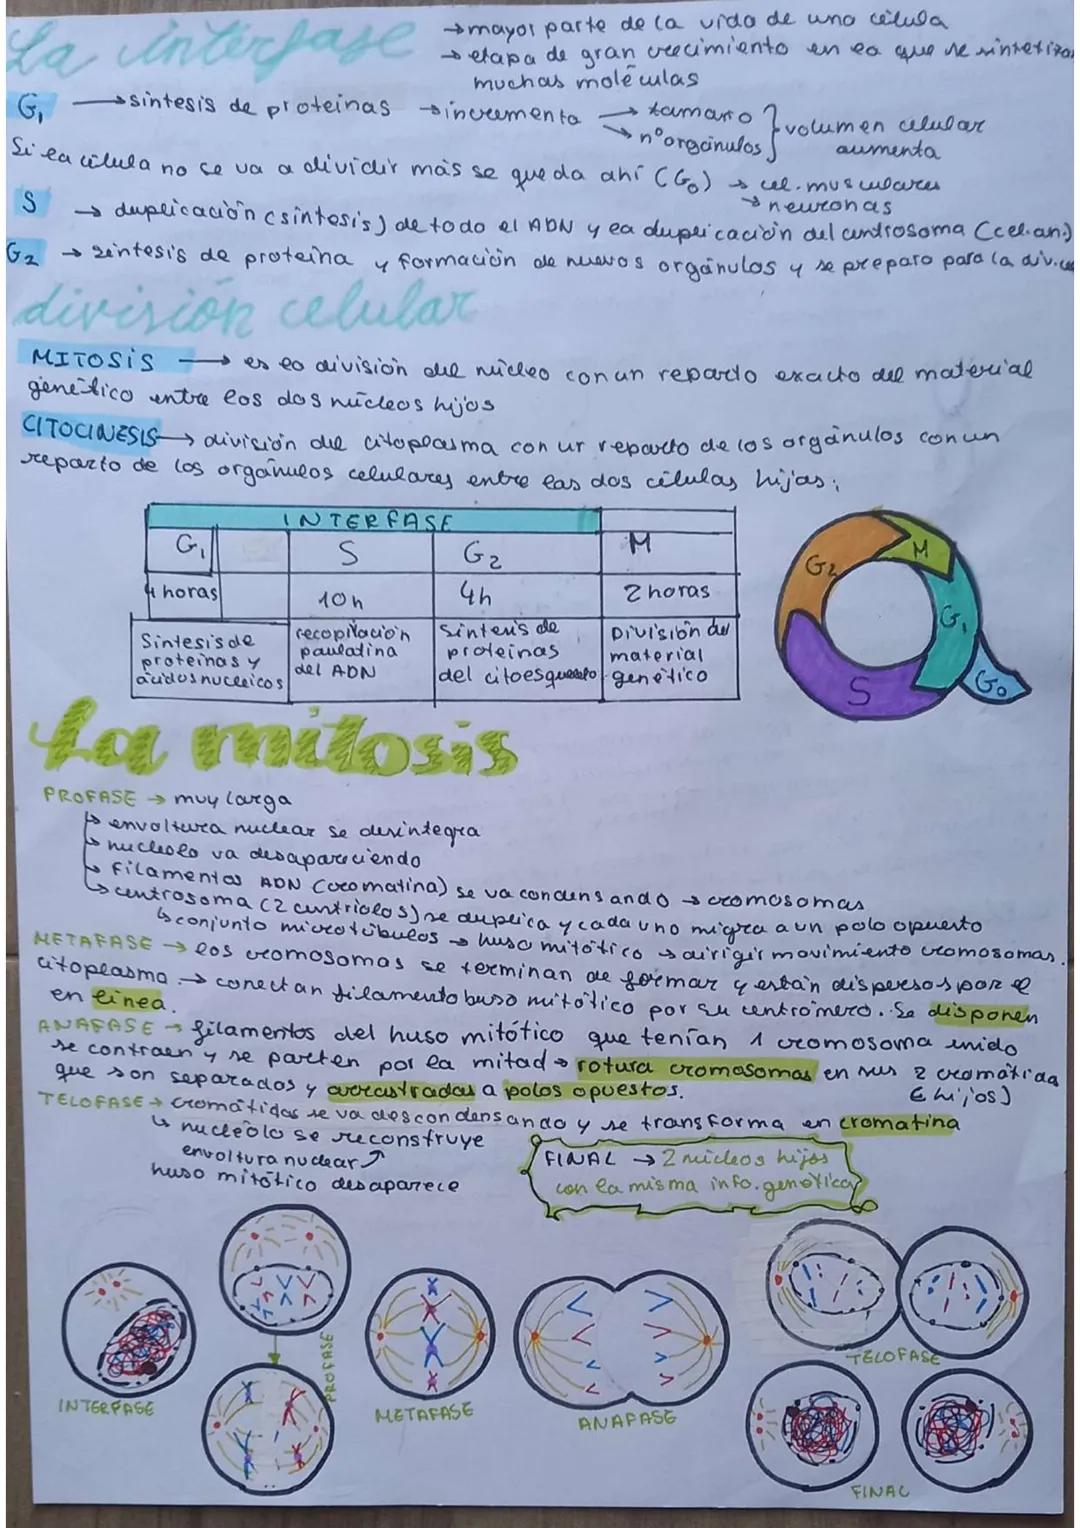 La interfase
→ mayor parte de la vida de una célula
→ etapa de gran crecimiento en la que se sintetizan
muchas moléculas
G₁ → síntesis de proteinas → incrementa → tamaño
→ nº orgánulos } volumen celular
aumenta
Si la célula no se va a dividir más se queda ahí (G₀) → cel. musculares
→ neuronas
S → duplicación (síntesis) de todo el ADN y la duplicación del centrosoma (cel. an.)
G₂ → síntesis de proteína y formación de nuevos orgánulos y se prepara para la div.
división celular
MITOSIS → es la división del núcleo con un reparto exacto del material
genético entre los dos núcleos hijos
CITOCINESIS → división del citoplasma con un reparto de los orgánulos con un
reparto de los orgánulos celulares entre las dos células hijas.
INTERFASE
G₁ S G₂ M
4 horas 10h 4h 2 horas
Síntesis de
proteinas y
ácidos nucleicos
recopilación
paulatina
del ADN
Síntesis de
proteínas
del citoesqueleto
División del
material
genético
G₂
M
G₁
S
G₀
La mitosis
PROFASE → muy larga
↳ envoltura nuclear se desintegra
↳ nucleolo va desapareciendo
↳ filamentos ADN (cromatina) se va condensando → cromosomas
↳ centrosoma (2 centriolos) se duplica y cada uno migra a un polo opuesto
↳ conjunto microtúbulos → huso mitótico → dirigir movimiento cromosomas.
METAFASE → los cromosomas se terminan de formar y están dispersos por el
citoplasma → conectan filamento huso mitótico por su centrómero. Se disponen
en línea.
ANAFASE → filamentos del huso mitótico que tenían 1 cromosoma unido
se contraen y se parten por la mitad → rotura cromosomas en sus 2 cromátidas
(hijos)
que son separados y arrastradas a polos opuestos.
TELOFASE → cromátidas se va descondensando y se transforma en cromatina
↳ nucléolo se reconstruye
envoltura nuclear ↗
huso mitótico desaparece
FINAL → 2 núcleos hijos
con la misma info. genética
INTERFASE
PROFASE
METAFASE
ANAFASE
TELOFASE
FINAL